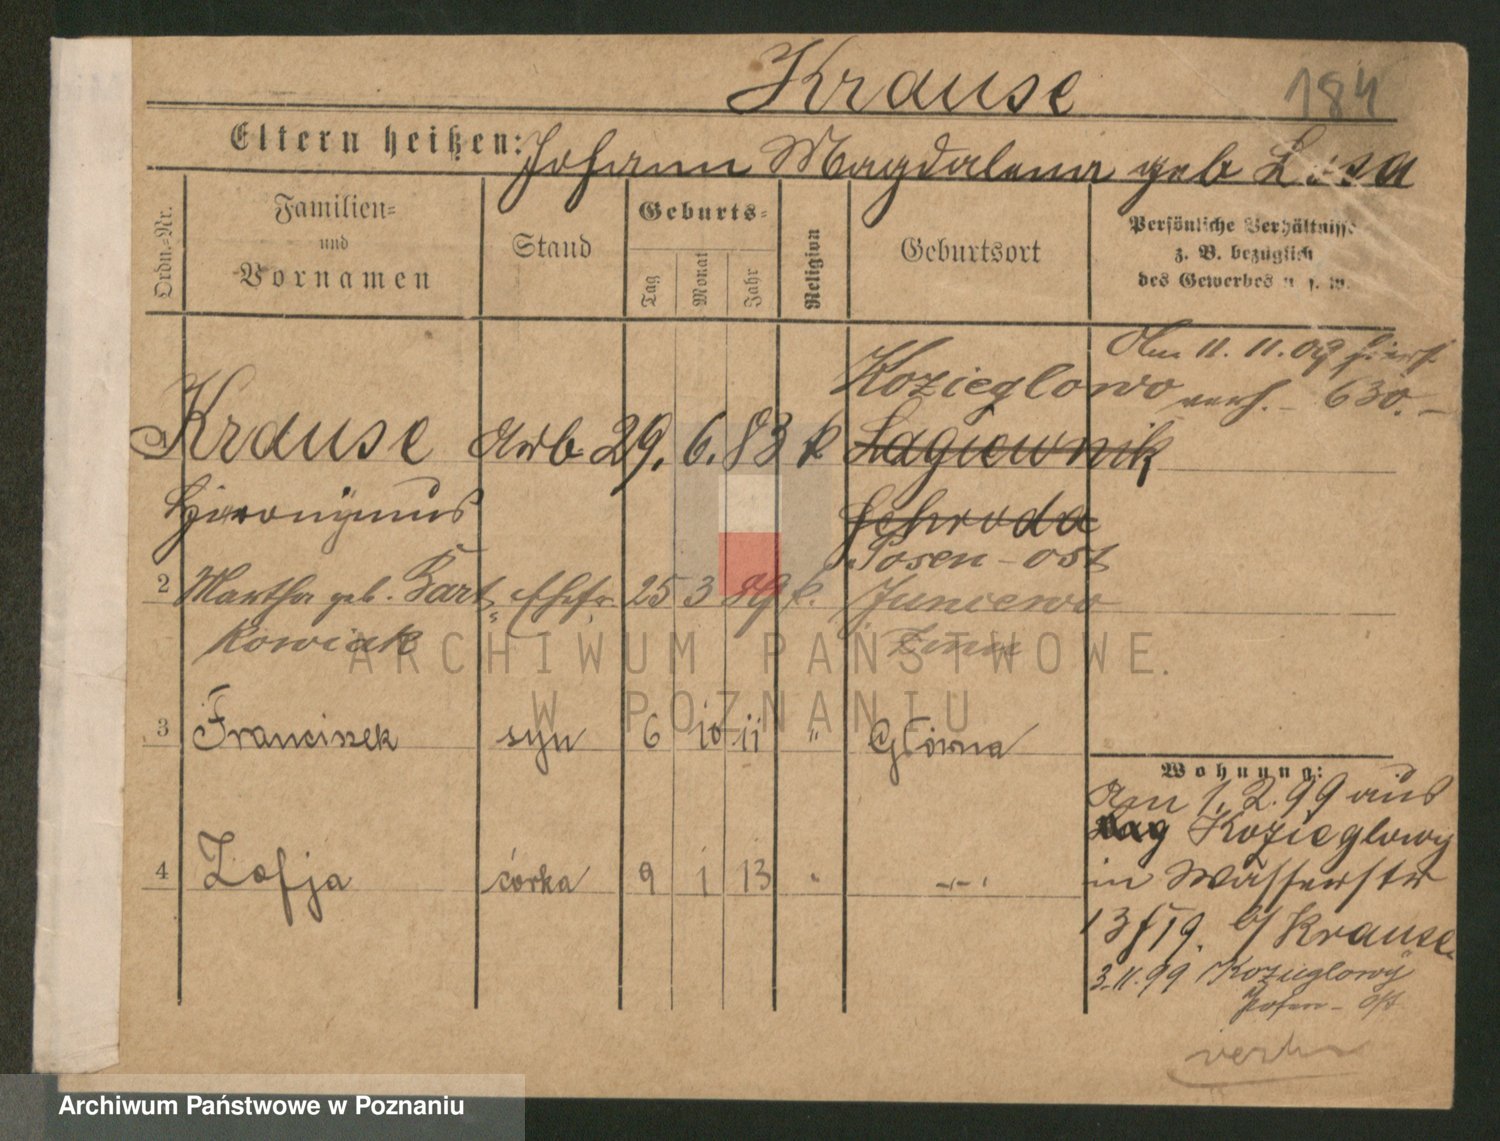 Krause 184
Eltern heißen: Johann Magdalena geb
Ordn.-Nr.
Familien-
und
Vornamen
Stand
Geburts-
Tag
Monat
Jahr
Religion
Geburtsort
Persönliche Verhältnisse
z. B. bezüglich
des Gewerbes u. s. w.
Am 11. 11. 09 hier
verh. - 630. -
Kozieglowo
Krause Arb 29. 6. 83 k Lagiewnik
Hieronÿmus Schroda
Posen - ost
2 Martha geb. Bart Ehefr. 25 3 89 k. Juncewo
kowiak Znin
3 Franciszek syn 6 10 11 " Główna
4 Zofja córka 9 1 13 " -"-
Wohnung:
Am 1. 2. 99 aus
Kozieglowy
in Wasserstr
13 f 19. b/ Krause
3. 11. 99 Kozieglowy
Posen - Ost
ARCHIWUM PAŃSTWOWE
W POZNANIU
Archiwum Państwowe w Poznaniu